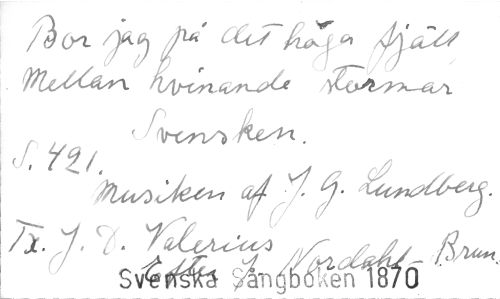 Bor jag på det höga fjäll
Mellan hvinande stormar
Svensken.
S. 421.
Musiken af J. G. Lundberg.
Tx. J. D. Valerius
Efter J. Nordahl-Brun.
Svenska Sångboken 1870